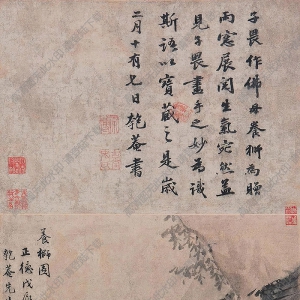 子畏作佛母養獅為贈
雨窓展閱生氣宛然益
見子畏畫手之妙為識
斯語以寶藏之是歲
二月十有七日匏菴書
養獅圖
正德戊
匏菴先